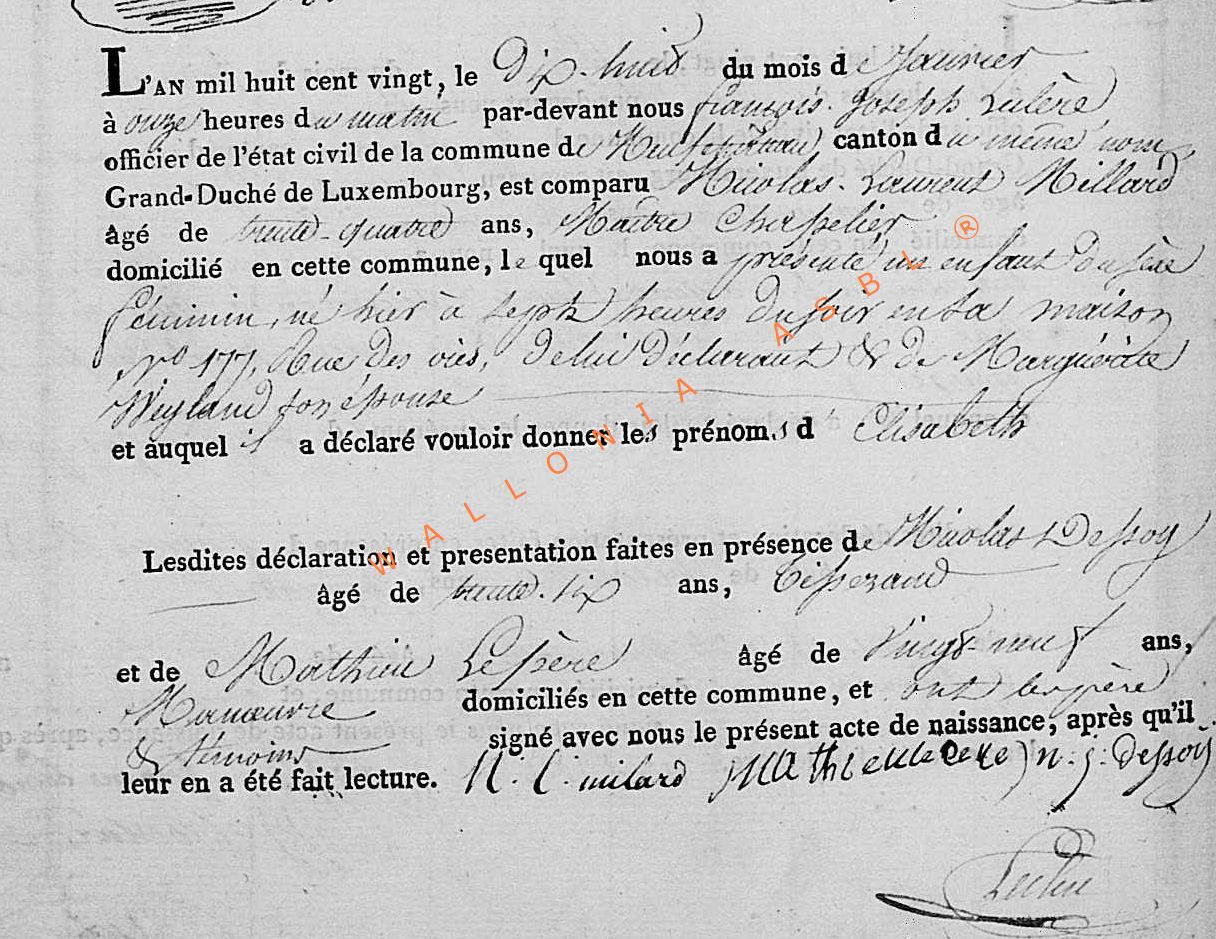 L'AN mil huit cent vingt, le Dix-huit du mois de Janvier
à onze heures du matin par-devant nous françois Joseph
officier de l'état civil de la commune de Neufchateau canton du même nom
Grand-Duché de Luxembourg, est comparu Nicolas Laurent Millard
âgé de trente-quatre ans, Maître Chapelier
domicilié en cette commune, lequel nous a présenté un enfant du sexe
féminin, né hier à sept heures du soir en sa maison
no 177, Rue des de lui Déclarant & de Marguérite
Weyland son épouse
et auquel il a déclaré vouloir donner les prénoms d Elisabeth
Lesdites déclaration et presentation faites en présence de Nicolas Dessoy
âgé de trente-six ans, tisserand
et de Mathieu Lepère âgé de vingt-neuf ans,
Manœuvre domiciliés en cette commune, et ont les père
& témoins signé avec nous le présent acte de naissance, après qu'il
leur en a été fait lecture. N. L. milard n. j. Dessoy
WALLONIA ASBL ®